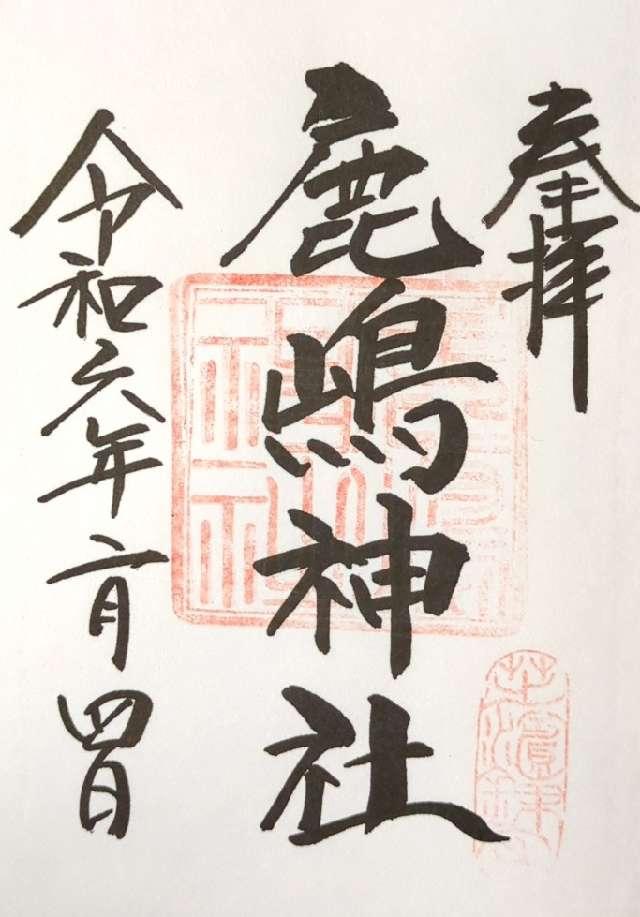 奉拝
鹿嶋神社
令和六年二月四日